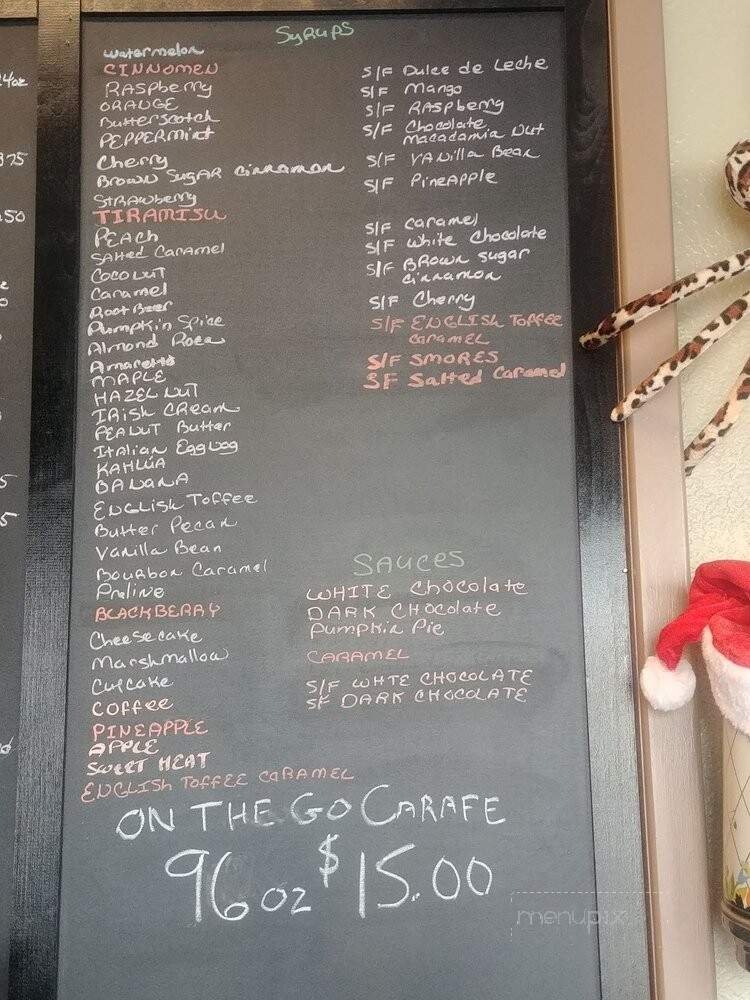 4oz
375
50
5
5
Syrups
watermelon
CINNOMEN
RASpberry
ORANGE
Butterscotch
PEPPERMint
Cherry
BROWN SUGAR cinnamon
STRAWberry
TIRAMISU
PEACH
SAlted Caramel
COCONUT
Caramel
Root Beer
Pumpkin Spice
Almond Roca
Amaretto
MAPLE
HAZELNUT
IRish CReam
PEANUT Butter
Italian Eggnog
KAHLUA
BANANA
ENGLISh Toffee
Butter Pecan
Vanilla Bean
Bourbon Caramel
Praline
BLACKBERRY
Cheesecake
Marshmallow
Cupcake
COFFEE
PINEAPPLE
APPLE
SWEET HEAT
ENGLISH TOFFEE CARAMEL
S/F Dulce de Leche
S/F Mango
S/F RASPberry
S/F Chocolate
Macadamia Nut
S/F VANilla Bean
S/F PineApple
S/F caramel
S/F White Chocolate
S/F BROWN sugar
cinnamon
S/F Cherry
S/F ENGLISH Toffee
caramel
S/F SMORES
SF Salted Caramel
SAUCES
WHITE Chocolate
DARK CHOCOlate
Pumpkin Pie
CARAMEL
S/F WHTE CHOCOLATE
SF DARK CHOCOLATE
ON THE GO CARAFE
96 oz $15.00
menupix